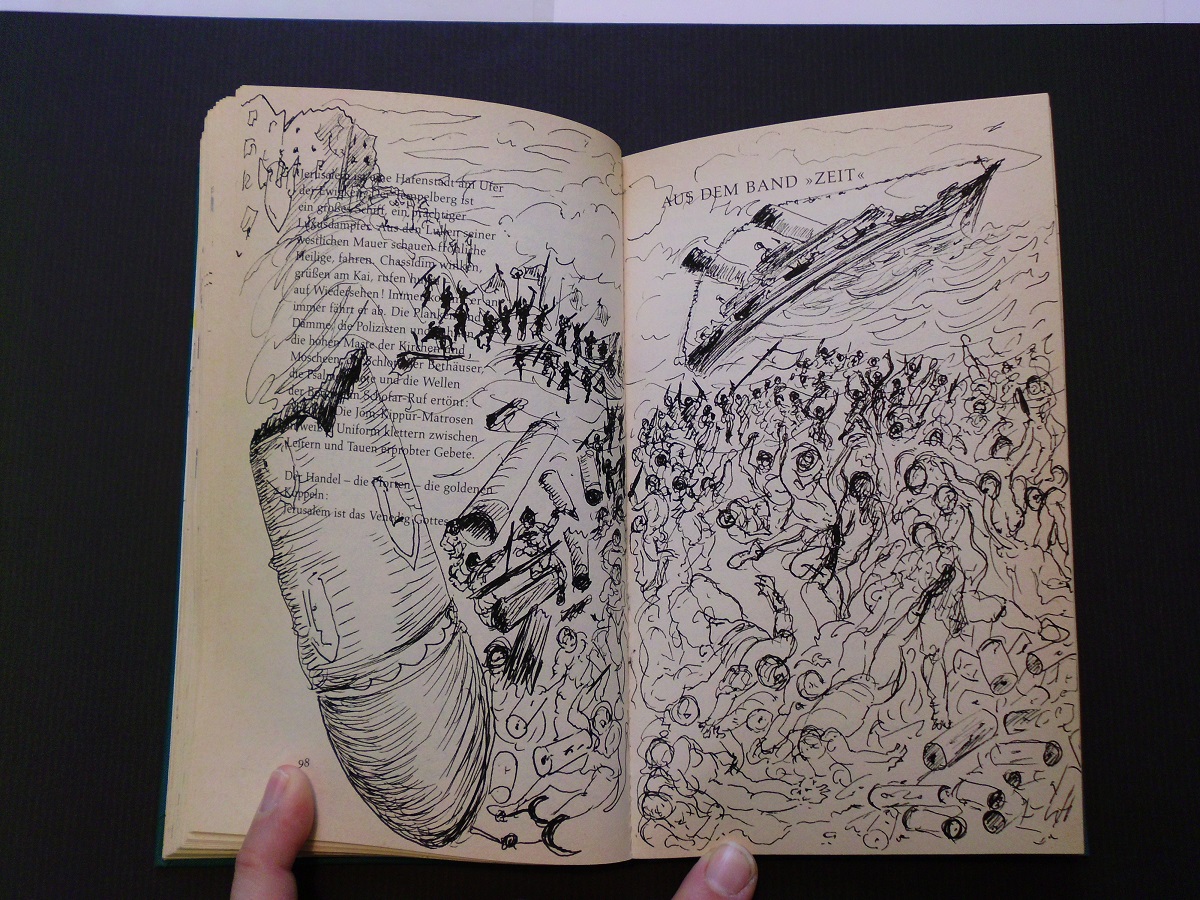 Jerusalem ist eine Hafenstadt am Ufer
der Ewigkeit. Der Tempelberg ist
ein großes Schiff, ein prächtiger
Luxusdampfer. Aus den Luken seiner
westlichen Mauer schauen fröhliche
Heilige, fahren. Chassidim winken,
grüßen am Kai, rufen
auf Wiedersehen! Immer kommt er an,
immer fährt er ab. Die
Dämme, die Polizisten und
die hohen Maste der Kirchen und
Moscheen, die Schlote der Bethäuser,
die und die Wellen
der Schofar-Ruf ertönt:
Die Jom-Kippur-Matrosen
weißer Uniform klettern zwischen
Leitern und Tauen erprobter Gebete.
Der Handel – die Pforten – die goldenen
Kuppeln:
Jerusalem ist das Venedig Gottes
98
AUS DEM BAND »ZEIT«